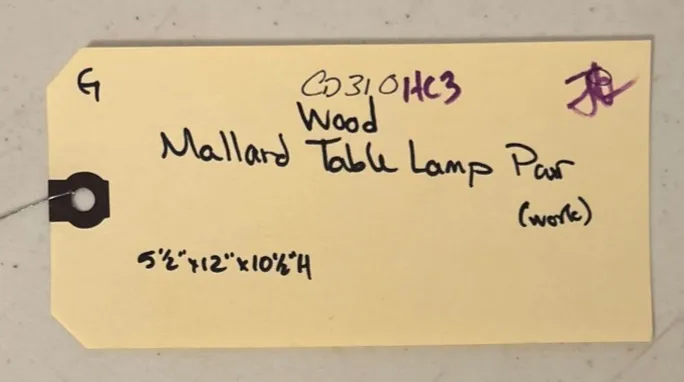 G
CD310HC3
Wood
Mallard Table Lamp Pair
(work)
5½"x12"x10½"H